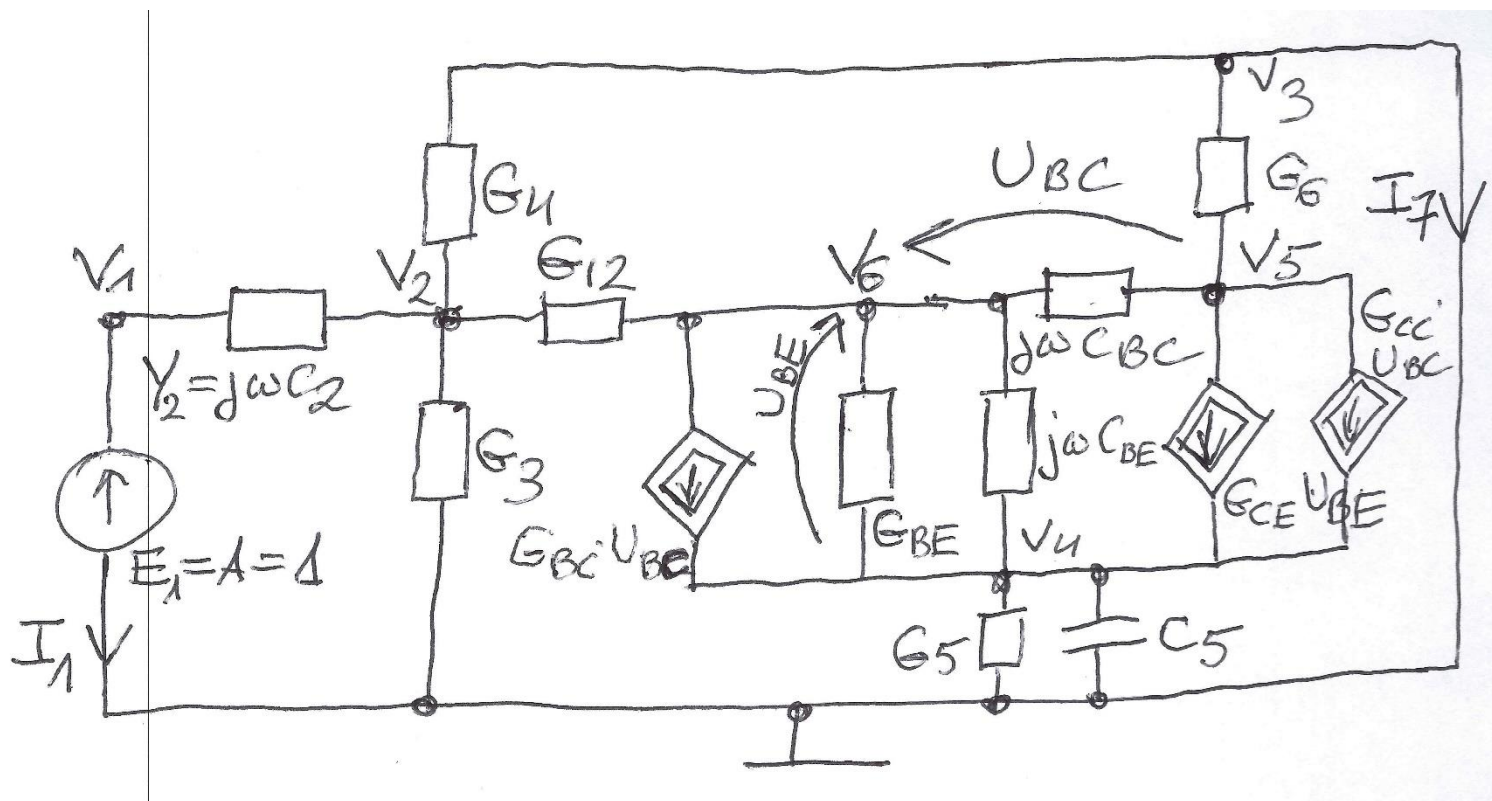 V3
UBC
G6
I7
G4
V1
V2
G12
V6
V5
Y2=jωC2
UBE
jωCBC
GCC·
UBC
G3
jωCBE
E1=A=1
GBC·UBC
GBE
V4
GCE UBE
I1
G5
C5